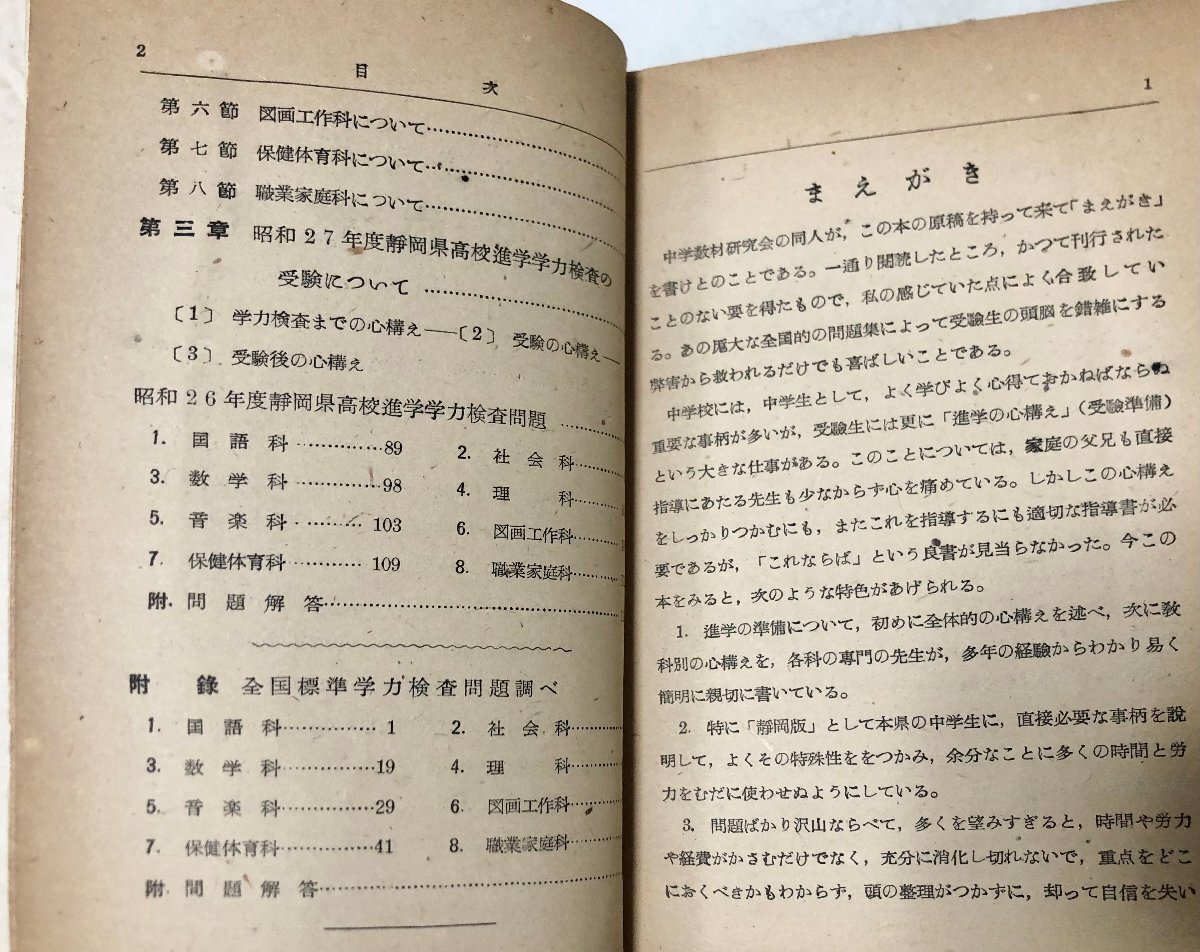 2
目次
第六節 図画工作科について……………………
第七節 保健体育科について……………………
第八節 職業家庭科について……………………
第三章 昭和27年度靜岡県高校進学学力検査の
受験について……………………
〔1〕 学力検査までの心構え——〔2〕 受験の心構え——
〔3〕 受験後の心構え
昭和26年度靜岡県高校進学学力検査問題……
1. 国語科…………89 2. 社会科……
3. 数学科…………98 4. 理科……
5. 音楽科…………103 6. 図画工作科……
7. 保健体育科…………109 8. 職業家庭科……
附. 問題解答……………………
附録 全国標準学力検査問題調べ
1. 国語科…………1 2. 社会科……
3. 数学科…………19 4. 理科……
5. 音楽科…………29 6. 図画工作科……
7. 保健体育科…………41 8. 職業家庭科……
附 問題解答……………………
1
まえがき
中学教材研究会の同人が，この本の原稿を持って来て「まえがき」
を書けとのことである。一通り閲読したところ，かつて刊行された
ことのない要を得たもので，私の感じていた点によく合致してい
る。あの厖大な全国的の問題集によって受験生の頭脳を錯雑にする
弊害から救われるだけでも喜ばしいことである。
中学校には，中学生として，よく学びよく心得ておかねばならぬ
重要な事柄が多いが，受験生には更に「進学の心構え」（受験準備）
という大きな仕事がある。このことについては，家庭の父兄も直接
指導にあたる先生も少なからず心を痛めている。しかしこの心構え
をしっかりつかむにも，またこれを指導するにも適切な指導書が必
要であるが，「これならば」という良書が見当らなかった。今この
本をみると，次のような特色があげられる。
1. 進学の準備について，初めに全体的の心構えを述べ，次に教
科別の心構えを，各科の専門の先生が，多年の経験からわかり易く
簡明に親切に書いている。
2. 特に「靜岡版」として本県の中学生に，直接必要な事柄を説
明して，よくその特殊性ををつかみ，余分なことに多くの時間と労
力をむだに使わせぬようにしている。
3. 問題ばかり沢山ならべて，多くを望みすぎると，時間や労力
や経費がかさむだけでなく，充分に消化し切れないで，重点をどこ
におくべきかもわからず，頭の整理がつかずに，却って自信を失い